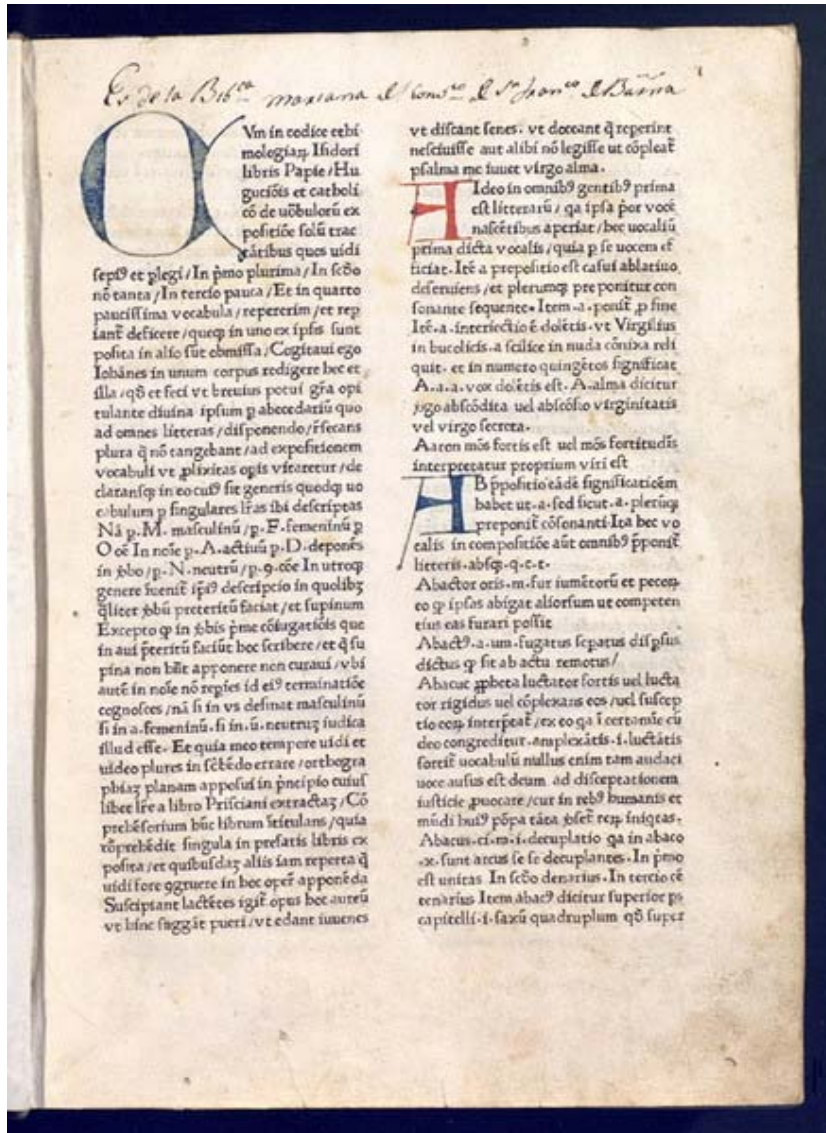 Es de la Bib.ca mariana del conv.to de S.n Fran.co de Barña
QVm in codice ethi
mologiaꝝ Isidori
libris Papie/Hu
guciōis et catholi
cō de uōbulorū ex
positiōe solū trac
tātibus quos uidi
sepiꝰ et plegi/In p̄mo plurima/In scd̄o
nō tanta/In tercio pauca/Et in quarto
paucissima vocabula/repererim/et rep
iant̄ deficere/queqꝫ in uno ex ipsis sunt
posita in alio sūt obmissa/Cogitaui ego
Iohānes in unum corpus redigere hec et
illa/qd̄ et feci vt breuius potui gr̄a opi
tulante diuina ipsum ꝑ abecedariū quo
ad omnes litteras/disponendo/r̄secans
plura q̄ nō tangebant/ad expositionem
vocabuli vt ꝓlixitas opis vitaretur/de
claransqꝫ in eo cuiꝰ sit generis quodqꝫ uo
cabulum ꝑ singulares lr̄as ibi descriptas
Nā ꝑ.M. masculinū/ꝑ.F. femeninū ꝑ
O oē In noīe ꝑ.A.actiuū ꝑ.D.deponēs
in ꝟbo/ꝑ.N.neutrū/ꝑ.ꝯ.cōe In utroqꝫ
genere īuenit̄ ip̄iꝰ descripcio in quolibꝫ
q̄liter ꝟbū preteritū faciat/et supinum
Excepto ꝙ in ꝟbis p̄me cōiugatiōis que
in aui p̄teritū faciūt hoc scribere/et q̄ su
pina non hn̄t apponere non curaui/vbi
autē in noīe nō repies id eiꝰ terminatiōe
cognosces/nā si in vs desinat masculinū
si in a.femeninū.si in.ū.neutruꝫ iudica
illud esse. Et quia meo tempore uidi et
uideo plures in sc̄bēdo errare/orthogra
phiaꝫ planam apposui in p̄ncipio cuius
libet lr̄e a libro Prisciani extractaꝫ/Cō
prehēsorium hūc librum ītitulans/quia
cōprehēdit singula in prefatis libris ex
posita/et quibusdaꝫ aliis iam reperta q̄
uidi fore ꝯgruere in hoc oper̄ apponēda
Suscipiant lactētes igit̄ opus hoc aureū
vt hinc suggāt pueri/vt edant iuuenes
vt discant senes. vt doceant q̄ reperint
nesciuisse aut alibi nō legisse ut cōpleat̄
psalma me iuuet virgo alma.
A Ideo in omnibꝰ gentibꝰ prima
est litterarū/qa ipsa p̄or vocē
nascētibus aperiat/hec uocaliū
prima dicta vocalis/quia ꝑ se uocem ef
ficiat.Itē a prepositio est casui ablatiuo
deseruiens/et plerumqꝫ preponitur con
sonante sequente. Item.a.ponit̄ ꝓ fine
Itē.a.interiectio ē dolētis.vt Virgilius
in bucolicis.a scilice in nuda cōnixa reli
quit. et in numero quingētos significat
A.a.a.vox dolētis est. A.alma dicitur
ꝟgo abscōdita uel abscōsio virginitatis
vel virgo secreta.
Aaron mōs fortis est uel mōs fortitudīs
interpretatur proprium viri est
AB p̄positio eādē significaticēm
habet ut.a.sed sicut.a.plerūqꝫ
preponit̄ cōsonanti Ita hec vo
calis in compositiōe aūt omnibꝰ p̄ponit̄
litteris.absqꝫ.q.c.t.
Abactor oris.m.fur iumētorū et pecoꝝ
eo ꝙ ipsas abigat aliorsum ut competen
tius eas furari possit
Abactꝰ.a.um.fugatus sepatus dispsus
dictus ꝙ sit ab actu remotus/
Abacuc ꝓpheta luctator fortis uel lucta
tor rigidus uel cōplexans eos/uel suscep
tio eoꝝ interp̄eat̄/ex eo qa ī certamīe cū
deo congreditur.amplexātis.i.luctātis
sortit̄ uocabulū nullus enim tam audaci
uoce ausus est deum ad disceptationem
iusticie ꝓuocare/cur in rebꝰ humanis et
mūdi huiꝰ pōpa tāta ꝟset̄ reꝝ iniqtas.
Abacus.ci.m.i.decuplatio qa in abaco
.x.sunt arcus se se decuplantes.In p̄mo
est unitas In scd̄o denarius.In tercio cē
tenarius Item abacꝰ dicitur superior ps
capitelli.i.saxū quadruplum qd̄ super